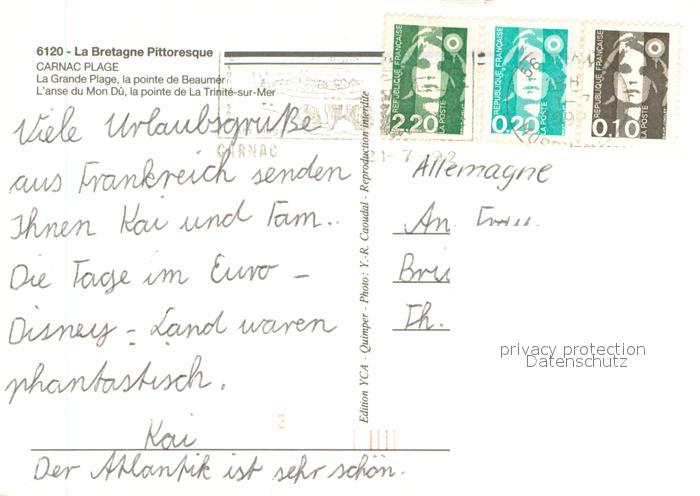 6120 - La Bretagne Pittoresque
CARNAC PLAGE
La Grande Plage, la pointe de Beaumer
L'anse du Mon Dû, la pointe de La Trinité-sur-Mer
Viele Urlaubsgrüße
aus Frankreich senden
Ihnen Kai und Fam..
Die Tage im Euro -
Disney - Land waren
phantastisch.
Kai
Der Atlantik ist sehr schön.
CARNAC
21-7
Edition YCA - Quimper - Photo : Y.-R. Caoudal - Reproduction interdite
REPUBLIQUE FRANÇAISE
2,20
LA POSTE
REPUBLIQUE FRANÇAISE
0,20
LA POSTE
REPUBLIQUE FRANÇAISE
0,10
LA POSTE
Allemagne
An
privacy protection
Datenschutz